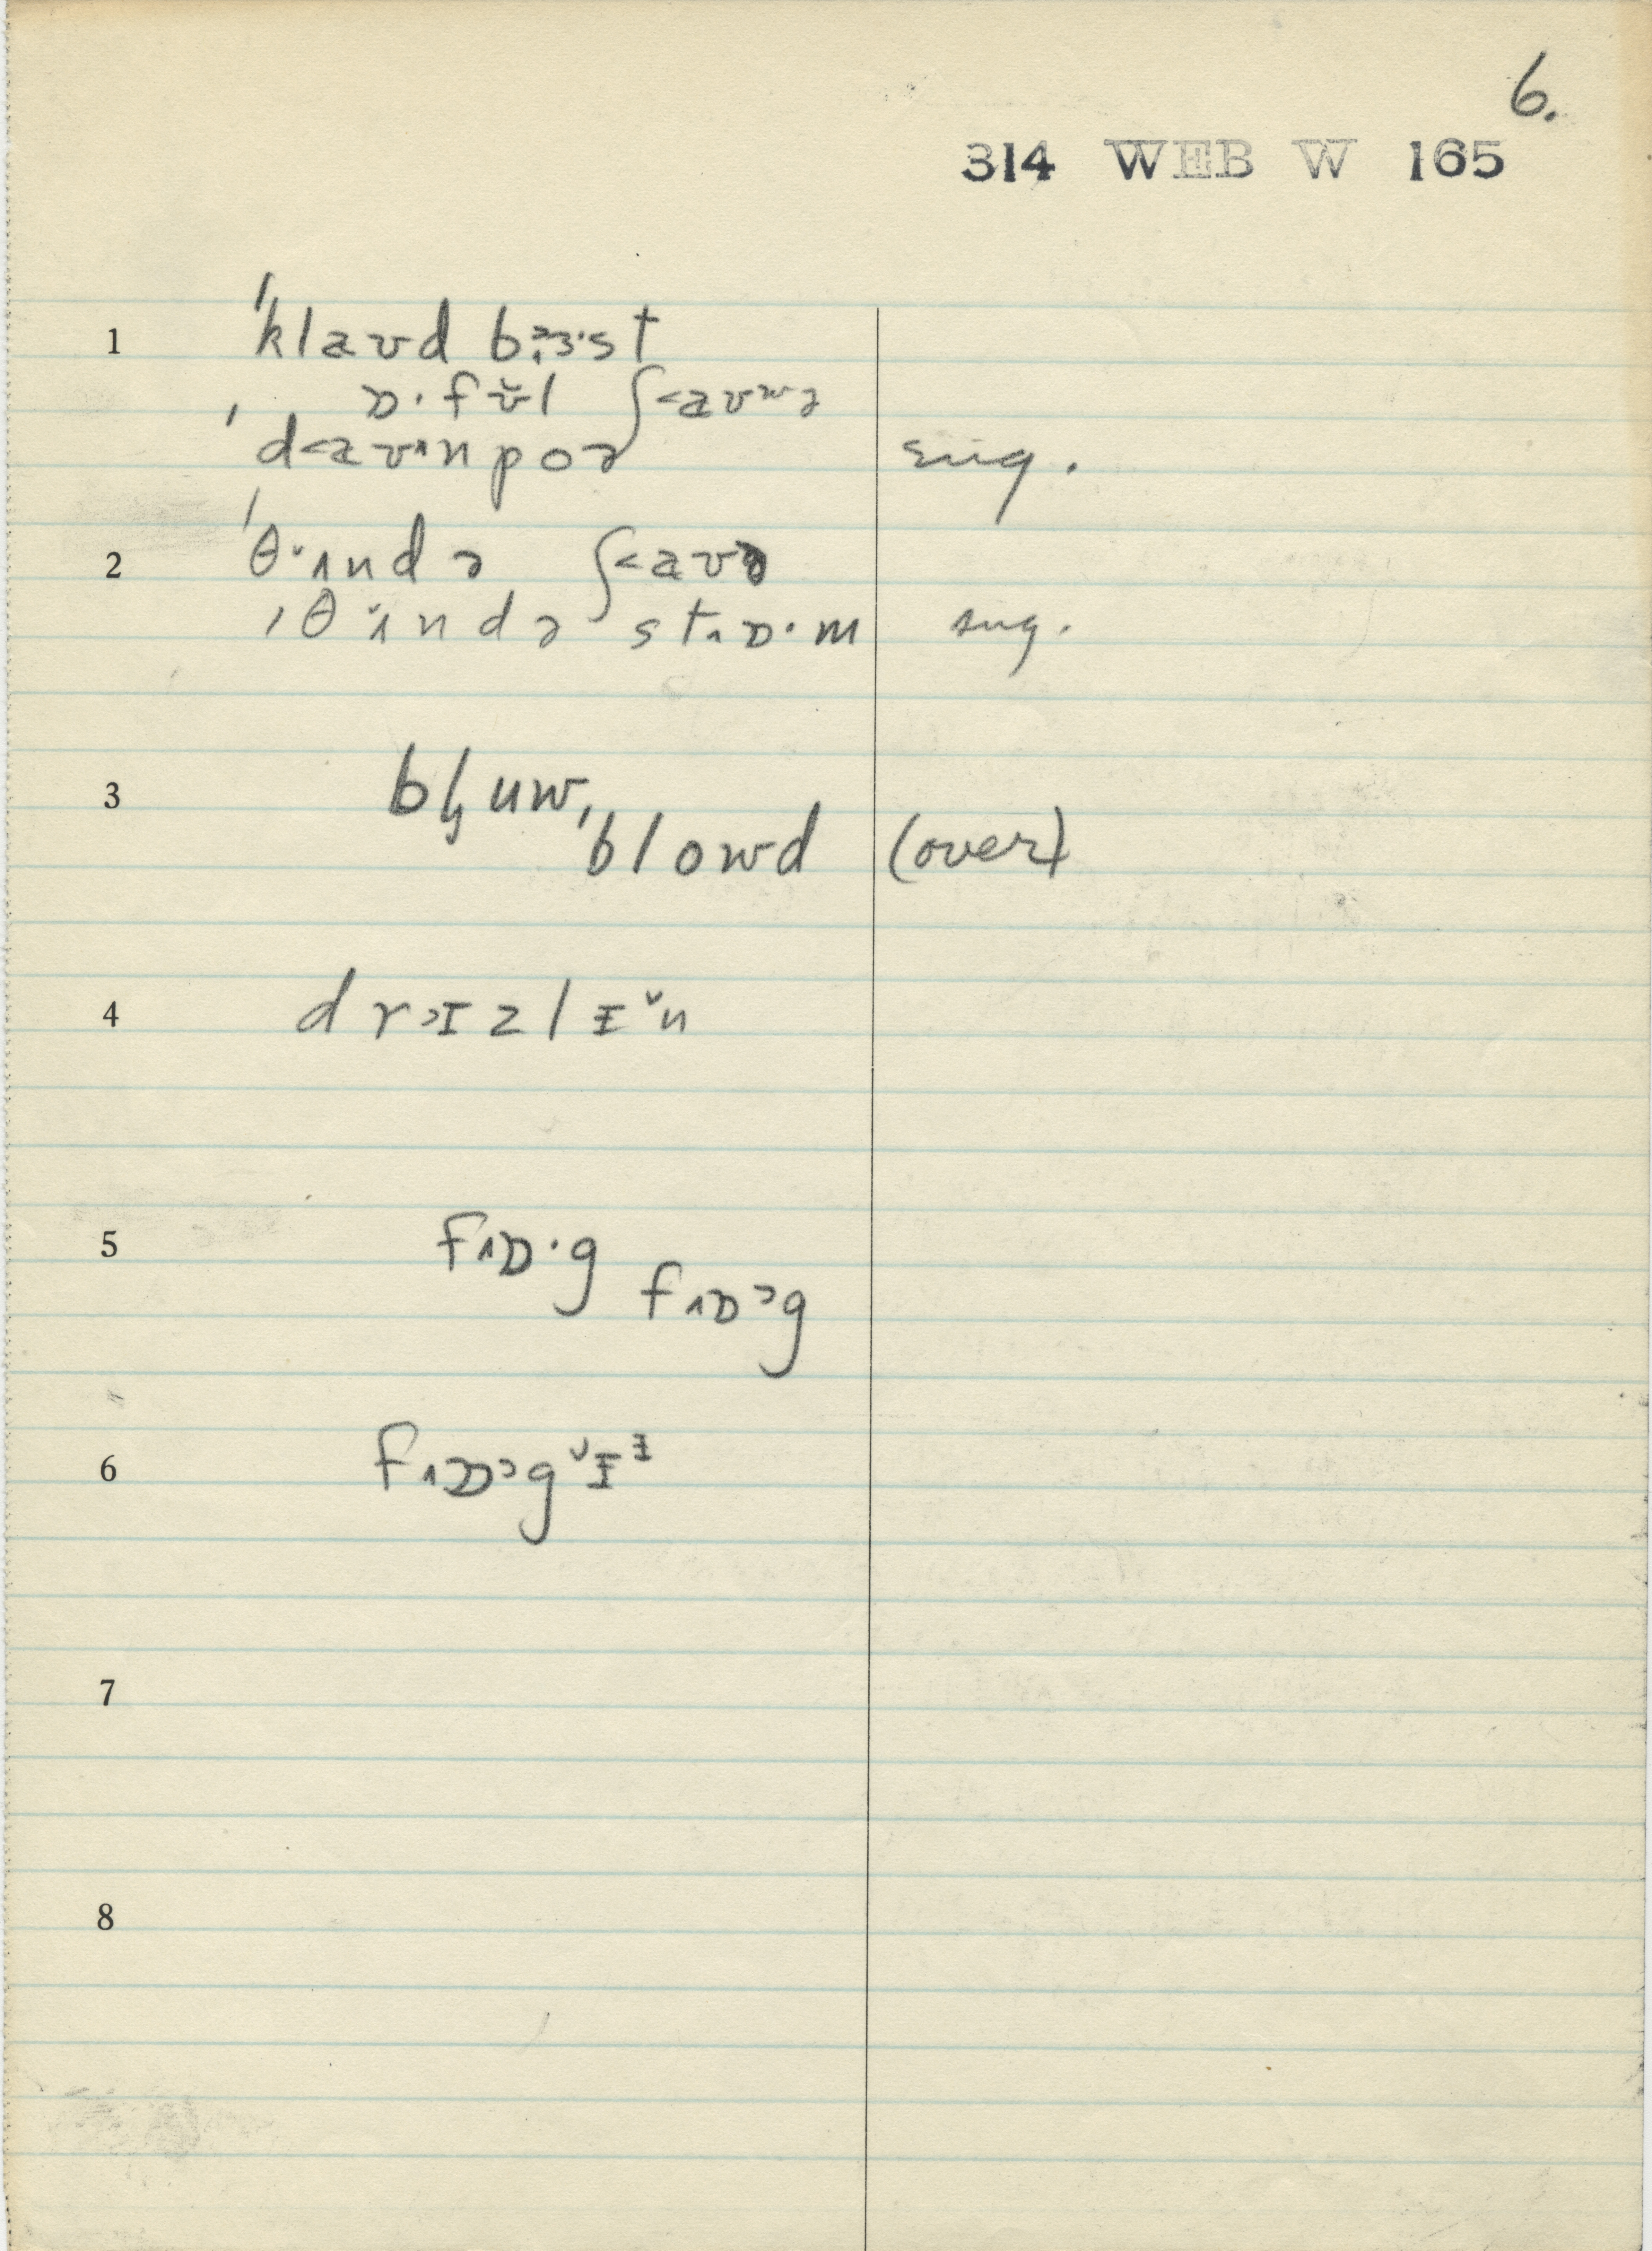 6.
314 WEB W 165
1 ˈklaʊd bɜ·st
ɒ·fʊ̌l ʃ<aʊʷə
ˈd<aʊ˄npoə sug.
2 ˈθ˄ndə ʃ<aʊə
ˌθ˄ndə st˄ɒ·m sug.
3 bl̡uw,
blowd (over)
4 drɪzlɨ̌n
5 f˄ɒ·g
f˄ɒᵊg
6 f˄ɒᵊgɨ̌ᶤ
7
8